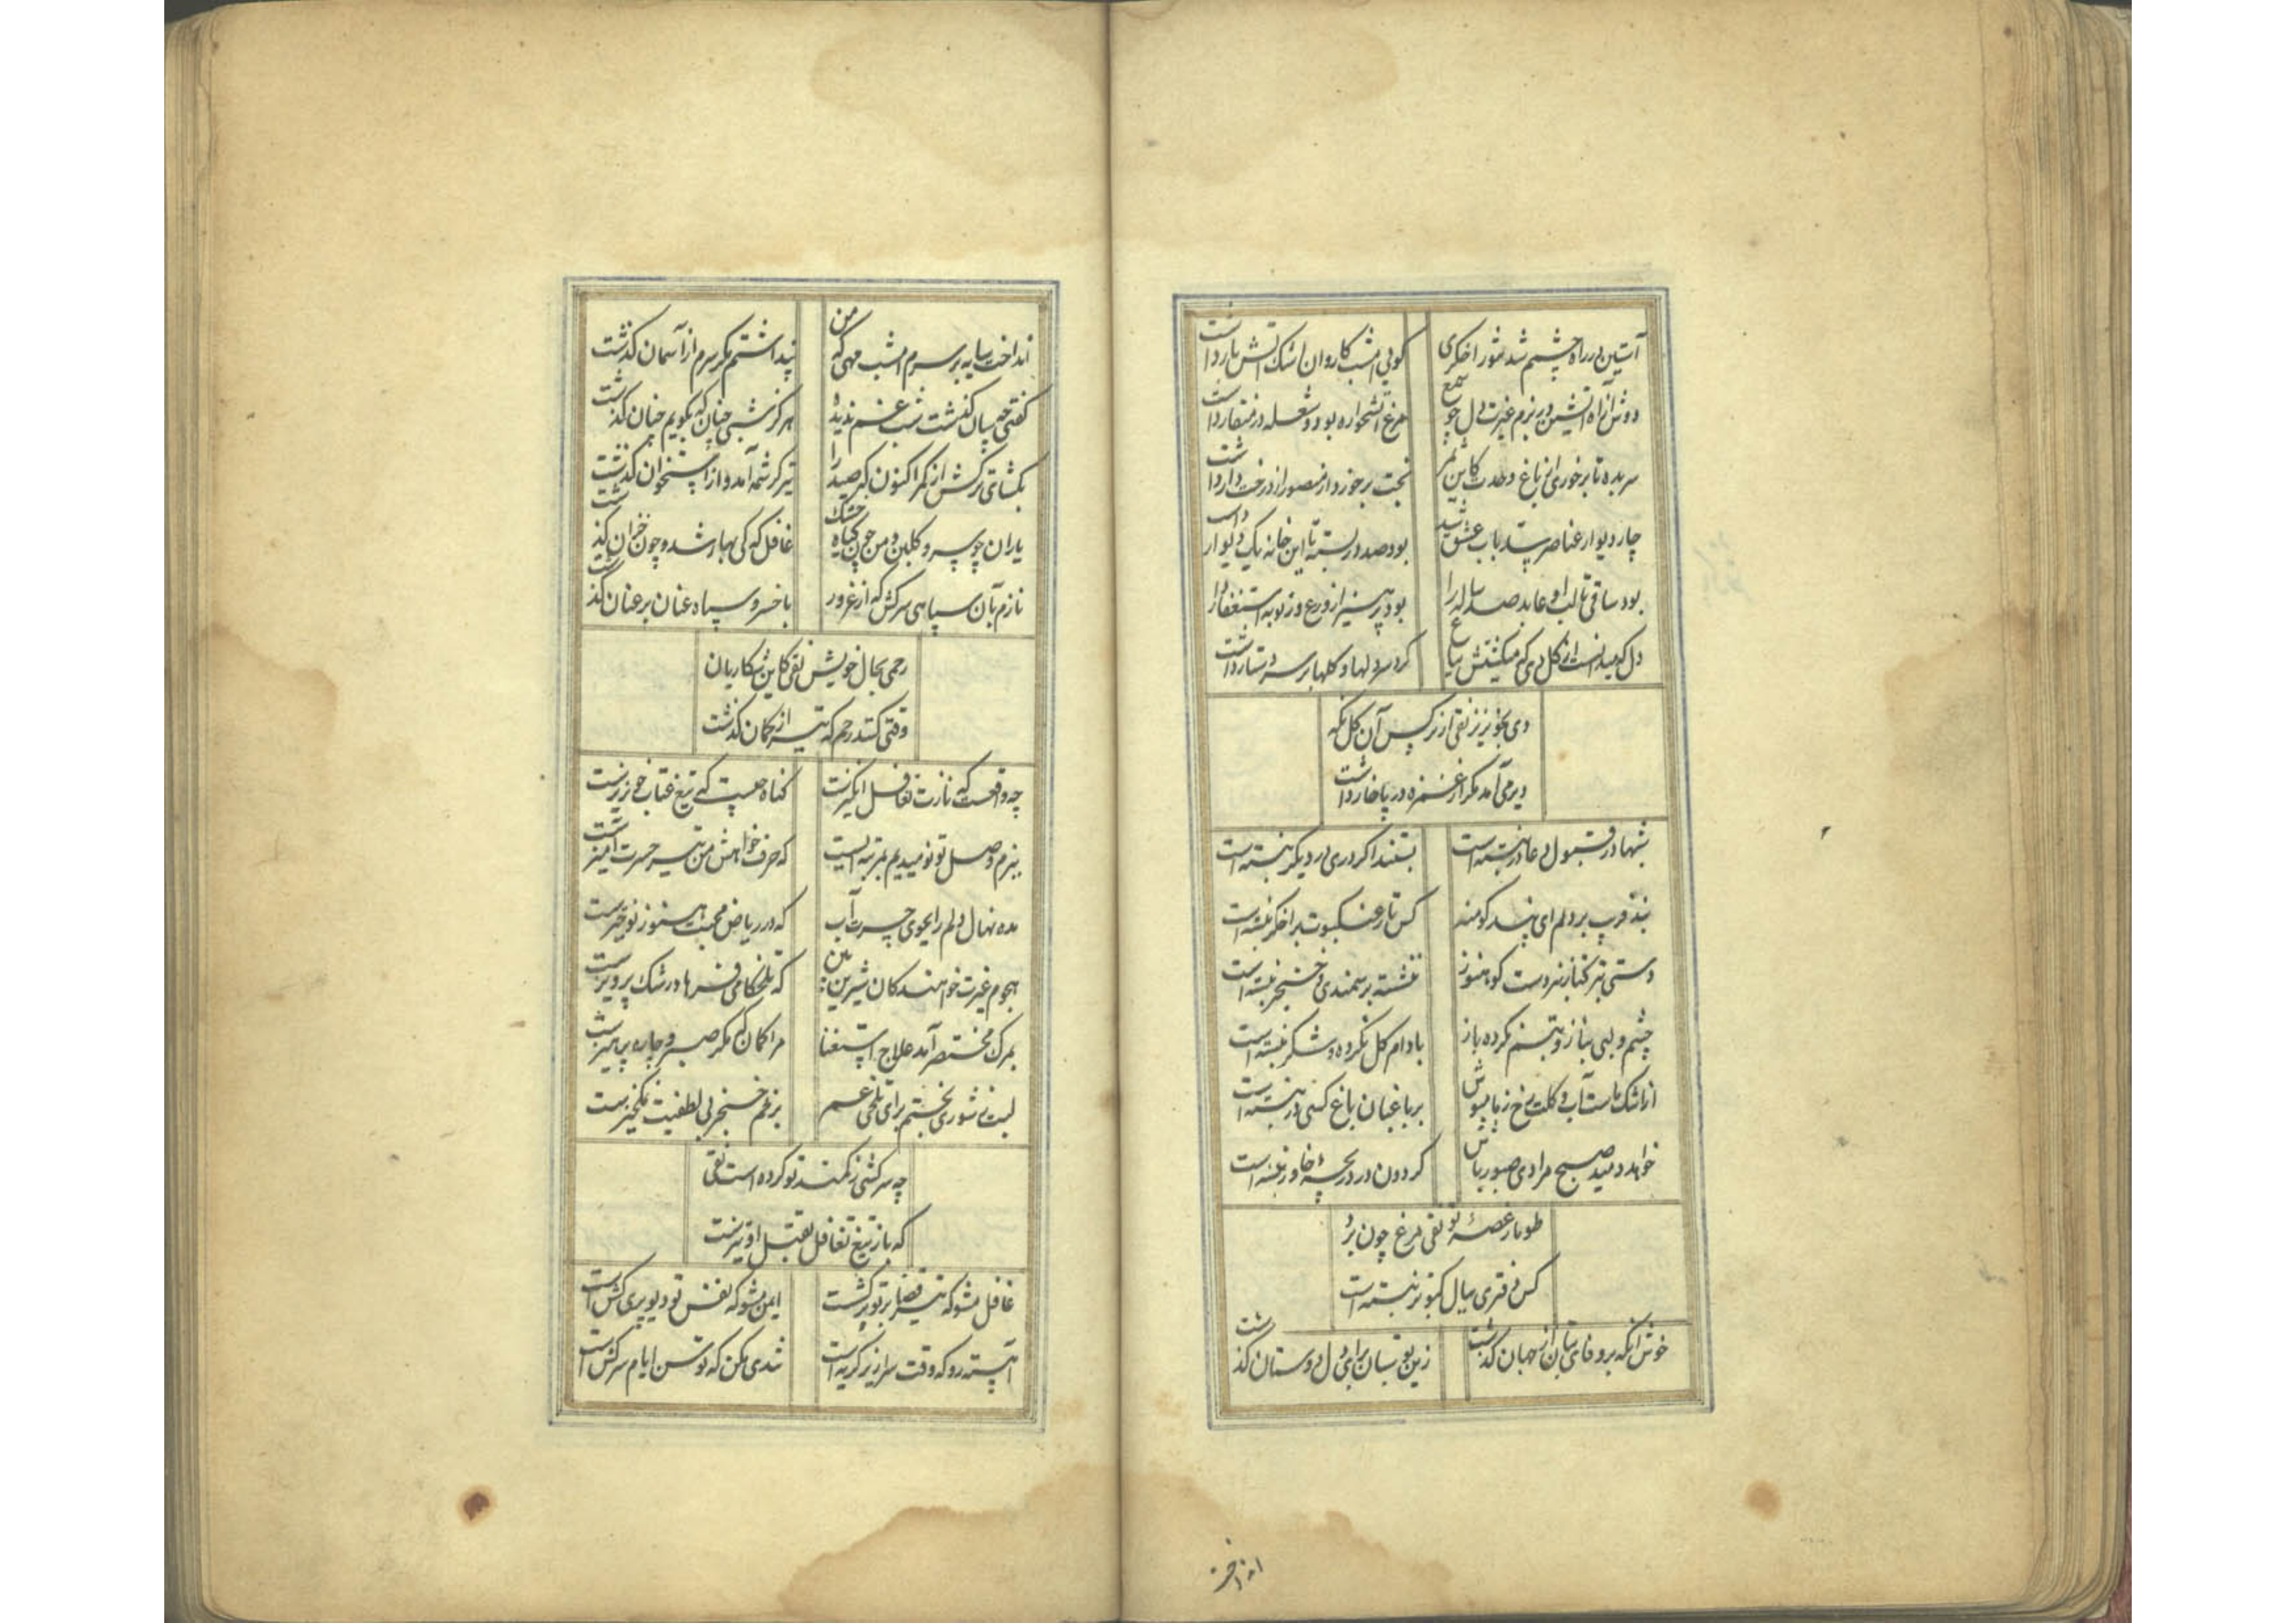 آستین بر راه چشمم شد شور اخگری
گویی امشب کاروان اشک آتش بار داشت
دوش از آه آتشین در بزم غیرت دل چو شمع
مرغ آتشخواره بود و شعله در منقار داشت
سر بده تا بر خوری از باغ وحدت کاین ثمر
بخت برخوردار منصور از درخت دار داشت
چار دیوار عناصر سد باب عشق شد
بود صد در بسته تا این خانه یک دیوار داشت
بود ساقی تا لب او عابد صد ساله را
بود پرهیز از ورع وز توبه استغفار داشت
دل که میدانست از گل دمی که میکشتش بباغ
گرد سر دلها و گلها بر سر دستار داشت
دی بخونریز نقی از نرگس آن گل نگه
دیر می آمد مگر از غمزه در پا خار داشت
شبها در قبول دعا در نبسته است
بستند اگر دری در دیگر نبسته است
بند فریب بر دلم ای پندگو منه
کس تار عنکبوت بر اخگر نبسته است
دستی بترکتاز نبردست کو هنوز
ننشسته بر سمندی و خنجر نبسته است
چشم و لبی بناز و تبسم نکرده باز
بادام گل نکرده و شکر نبسته است
از اشک ماست آب و گلت رخ ز ما مپوش
بر باغبان باغ کسی در نبسته است
خواهد دمید صبح مرادی صبور باش
گردون در دریچهٔ خاور نبسته است
طومار غصهٔ تو نقی مرغ چون برد
کس دفتری ببال کبوتر نبسته است
خوش آنکه بر وفای بتان از جهان گذشت
زین بوستان برای دل دوستان گذشت
انداخت
انداخت سایه بر سرم امشب مهی که من
پنداشتم مگر سرم از آسمان گذشت
گفتی چسان گذشت شب غم ندیدهٔ
هرگز شبی چنان که بگویم چنان گذشت
بگشای ترکش از کمر اکنون که صید را
تیر کرشمه آمد و از استخوان گذشت
یاران چو سرو و گلبن و من چون گیاه خشک
غافل که کی بهار شد و چون خزان گذشت
نازم بآن سپاهی سرکش که از غرور
با خسرو سپاه عنان بر عنان گذشت
رحمی بحال خویش نقی کاین شکاریان
وقتی کنند رحم که تیر از کمان گذشت
چه واقعست که نازت تغافل انگیزست
گناه چیست که تیغ عتاب خونریزست
ببزم وصل تو نومیدیم بمرتبه ایست
که حرف خواهش من تیر حسرت آمیزست
مده نهال دلم را بجوی حسرت آب
که در ریاض محبت هنوز نوخیزست
هجوم غیرت خواهندگان شیرین بین
که تلخکامی فرهاد رشک پرویزست
بمرگ مختصر آمد علاج استغنا
مرا گمان که مگر صبر و چاره پرهیزست
لبت نه شوری بختم برای تلخی غم
بزخم خنجر بی لطفیت نمک بیزست
چه سرکشی ز کمند تو کرده است نقی
که باز تیغ تغافل بقتل او تیزست
غافل مشو که تیر قضا بر تو پرکشست
ایمن مشو که نفس تو دیو پری کش است
آهسته رو که وقت سراریز گریه است
تندی مکن که توسن ایام سرکش است